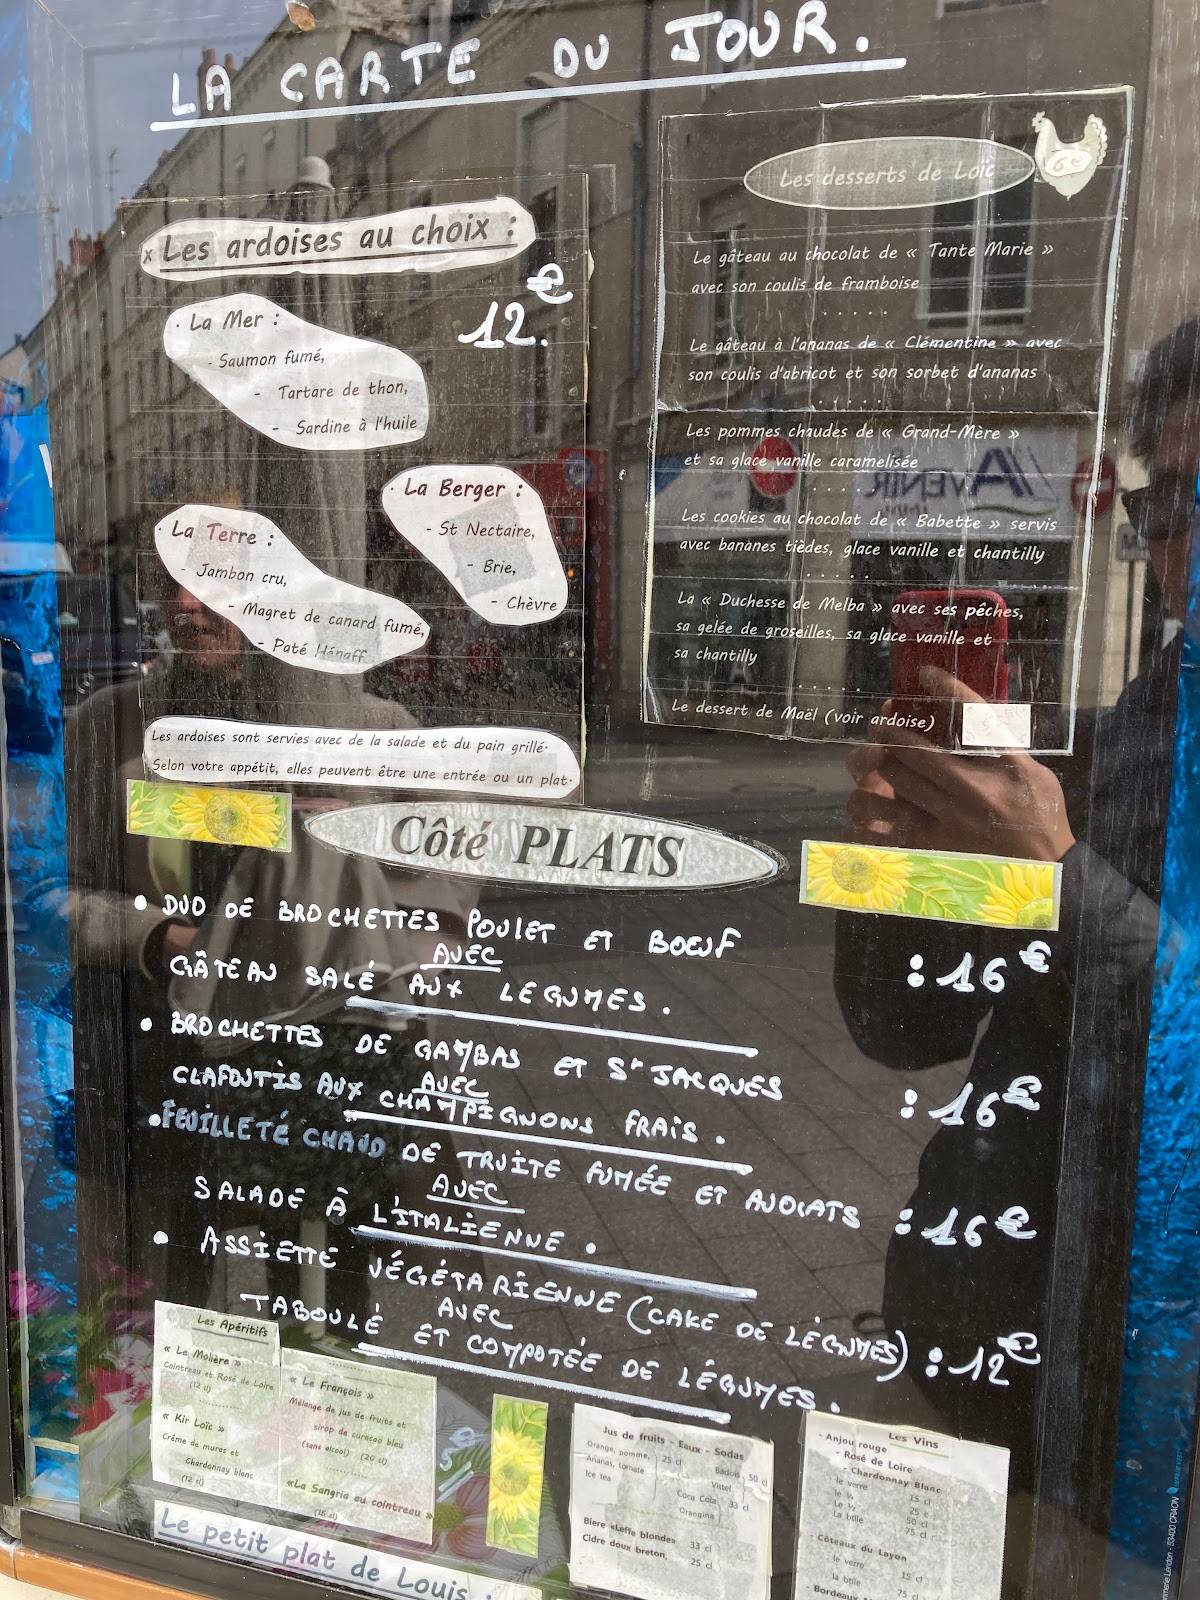 LA CARTE DU JOUR.
x Les ardoises au choix :
12.€
· La Mer :
- Saumon fumé,
- Tartare de thon,
- Sardine à l'huile
· La Berger :
- St Nectaire,
- Brie,
- Chèvre
· La Terre :
- Jambon cru,
- Magret de canard fumé,
- Paté Hénaff
Les ardoises sont servies avec de la salade et du pain grillé.
Selon votre appétit, elles peuvent être une entrée ou un plat.
Les desserts de Loïc
6€
Le gâteau au chocolat de « Tante Marie »
avec son coulis de framboise
. . . . .
Le gâteau à l'ananas de « Clémentine » avec
son coulis d'abricot et son sorbet d'ananas
. . . . .
Les pommes chaudes de « Grand-Mère »
et sa glace vanille caramelisée
. . . . .
Les cookies au chocolat de « Babette » servis
avec bananes tièdes, glace vanille et chantilly
. . . . .
La « Duchesse de Melba » avec ses pêches,
sa gelée de groseilles, sa glace vanille et
sa chantilly
. . . . .
Le dessert de Maël (voir ardoise)
Côté PLATS
• DUO DE BROCHETTES POULET ET BOEUF
AVEC
GÂTEAU SALÉ AUX LEGUMES. : 16€
• BROCHETTES DE GAMBAS ET St JACQUES
AVEC
CLAFOUTIS AUX CHAMPIGNONS FRAIS. : 16€
• FEUILLETÉ CHAUD DE TRUITE FUMÉE ET AVOCATS
AVEC
SALADE À L'ITALIENNE. : 16€
• ASSIETTE VÉGÉTARIENNE (CAKE DE LÉGUMES)
AVEC
TABOULÉ ET COMPOTÉE DE LÉGUMES. : 12€
Les Apéritifs
« Le Molière »
Cointreau et Rosé de Loire
(12 cl)
« Kir Loïc »
Crème de mures et
Chardonnay blanc
(12 cl)
« Le François »
Mélange de jus de fruits et
sirop de curacao bleu
(sans alcool) (20 cl)
«La Sangria au cointreau »
(15 cl)
Le petit plat de Louis :
Jus de fruits - Eaux - Sodas
Orange, pomme, 25 cl
Ananas, tomate
Ice tea
Badoit 50 cl
Vittel
Coca Cola 33 cl
Orangina
Biere «Leffe blonde» 33 cl
Cidre doux breton, 25 cl
Les Vins
- Anjou rouge
- Rosé de Loire
- Chardonnay Blanc
le verre 15 cl
Le ¼ 25 c
Le ½ 50 cl
La btlle 75 cl
- Côteaux du Layon
le verre 15 cl
la btlle 75 cl
- Bordeaux
L'AVENIR
53400 CRAON